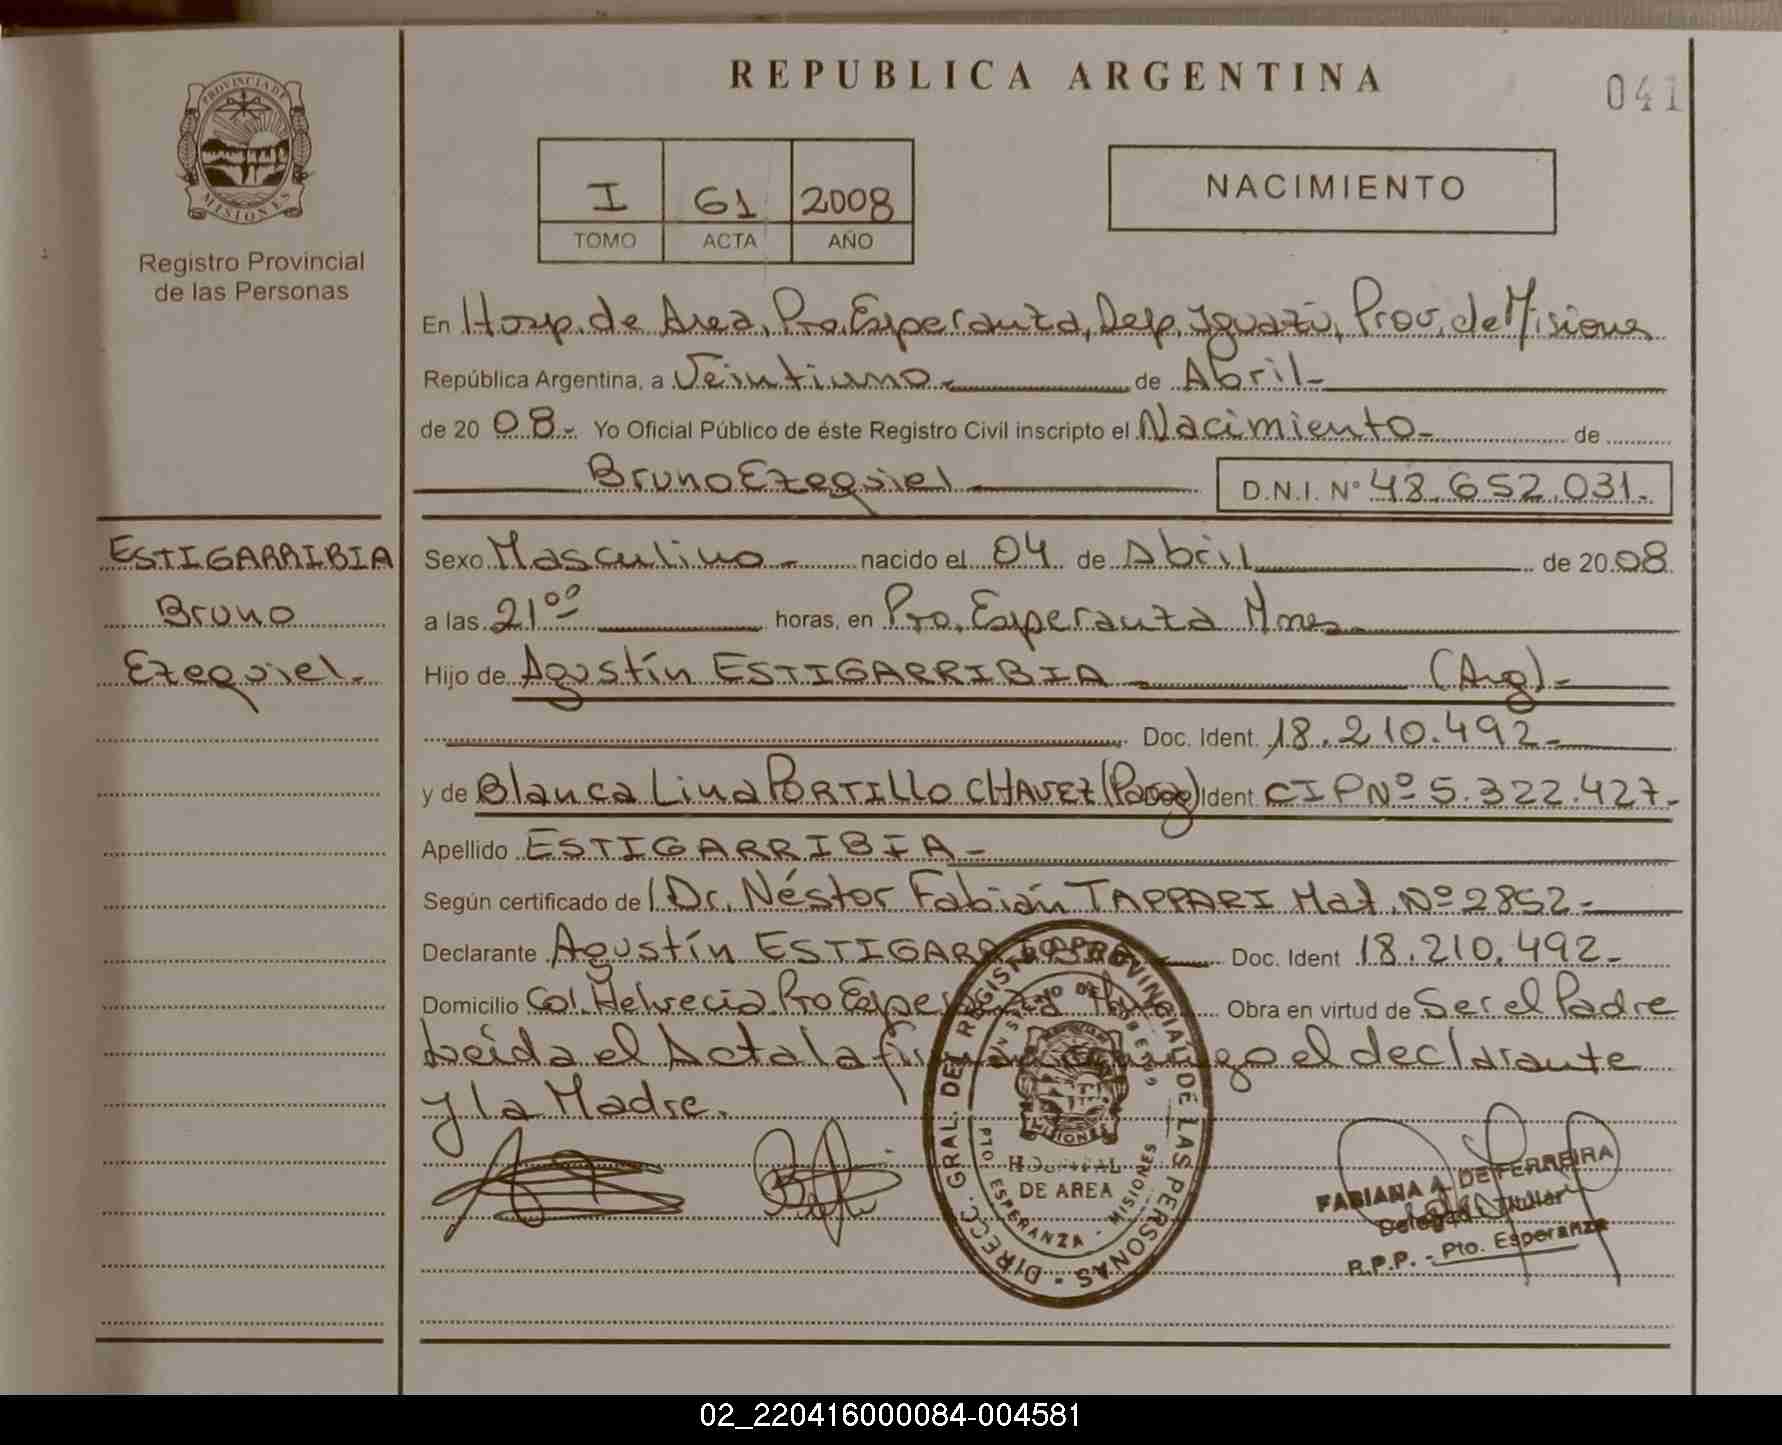 REPUBLICA ARGENTINA
041
PROVINCIA DE MISIONES
Registro Provincial
de las Personas
I 61 2008
TOMO ACTA AÑO
NACIMIENTO
En Hosp. de Area, Pto. Esperanza, Dep. Iguazú, Prov. de Misiones
República Argentina, a Veintiuno.- de Abril-
de 20 08.- Yo Oficial Público de éste Registro Civil inscripto el Nacimiento- de
Bruno Ezequiel
D.N.I. Nº 48.652.031.-
ESTIGARRIBIA
Bruno
Ezequiel.-
Sexo Masculino.- nacido el 04 de Abril de 20 08
a las 21ºº horas, en Pto. Esperanza Mnes.
Hijo de Agustín ESTIGARRIBIA - (Arg).-
Doc. Ident. 18.210.492-
y de Blanca Lina PORTILLO CHAVEZ (Parag) Ident CIP Nº 5.322.427-
Apellido ESTIGARRIBIA-
Según certificado de Dr. Néstor Fabián TAPPARI Mat. Nº 2852-
Declarante Agustín Doc. Ident 18.210.492-
Domicilio Col. Helvecia Pto Obra en virtud de Ser el Padre
Leída el Acta la el declarante
y la Madre.
DIRECC. GRAL. DEL REGISTRO PROVINCIAL DE LAS PERSONAS
MISIONES
HOSPITAL
DE AREA
PTO. ESPERANZA - MISIONES
FABIANA A. DE FERREIRA
Titular
R.P.P. - Pto. Esperanza
02_220416000084-004581